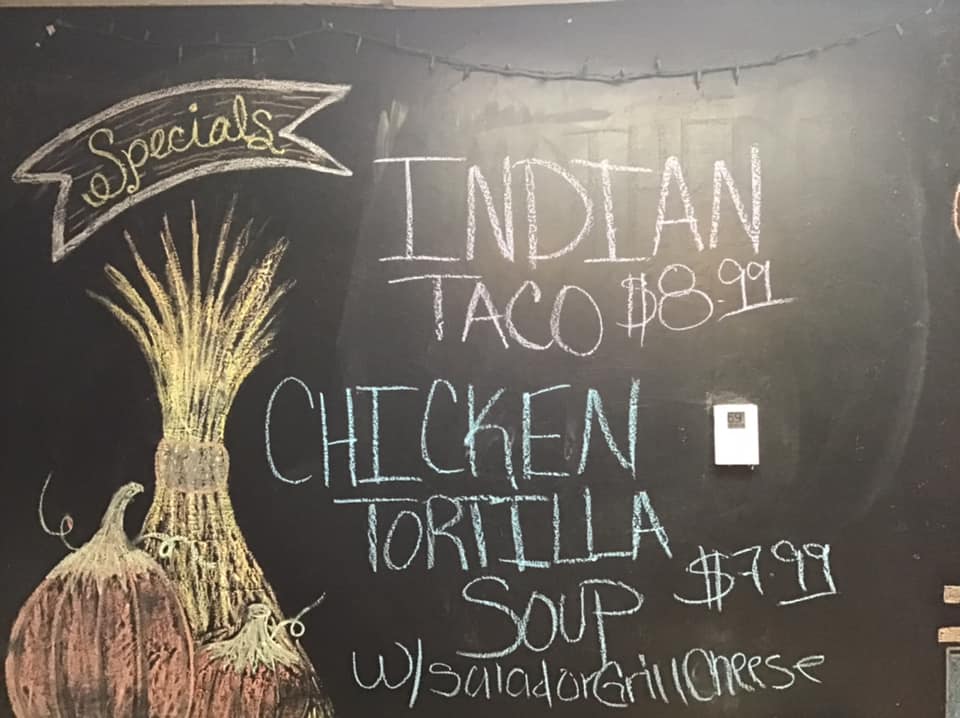 Specials
INDIAN
TACO $8.99
CHICKEN
TORTILLA
SOUP $7.99
W/saladorGrillCheese
69